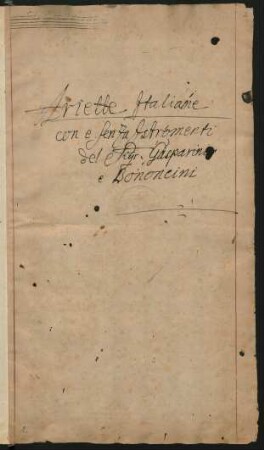 Ariette Italiane
con e senza Istromenti
del Sigr. Gasparini
e Bononcini